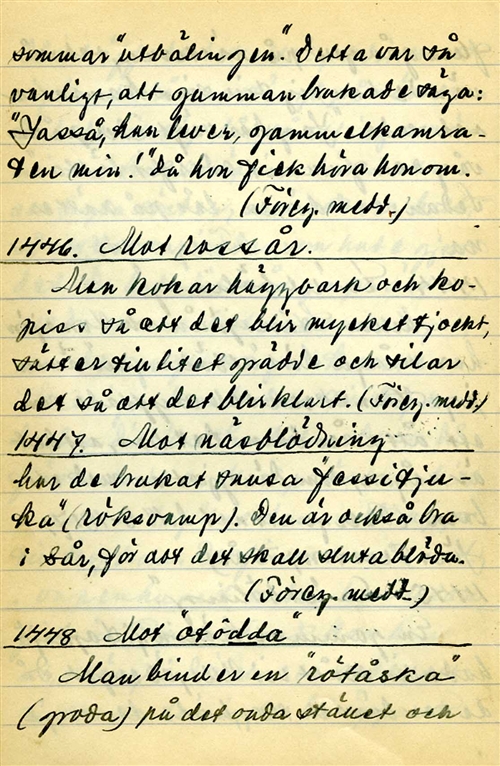 sommar "utbölingen". Detta var så
vanligt, att gumman brukade säga:
"Jasså, han lever, gammelkamra-
ten min!" då hon fick höra honom.
(Föreg. medd.)
1446. Mot rossår.
Man kokar häggbark och ko-
piss så att det blir mycket tjockt,
sätter till litet grädde och silar
det så att det blir klart. (Föreg. medd.)
1447. Mot näsblödning
har de brukat snusa "fessitju-
ka" (röksvamp). Den är också bra
i sår, för att det skall sluta blöda.
(Föreg. medd.)
1448 Mot "otödda"
Man binder en "rötåska"
(groda) på det onda stället och